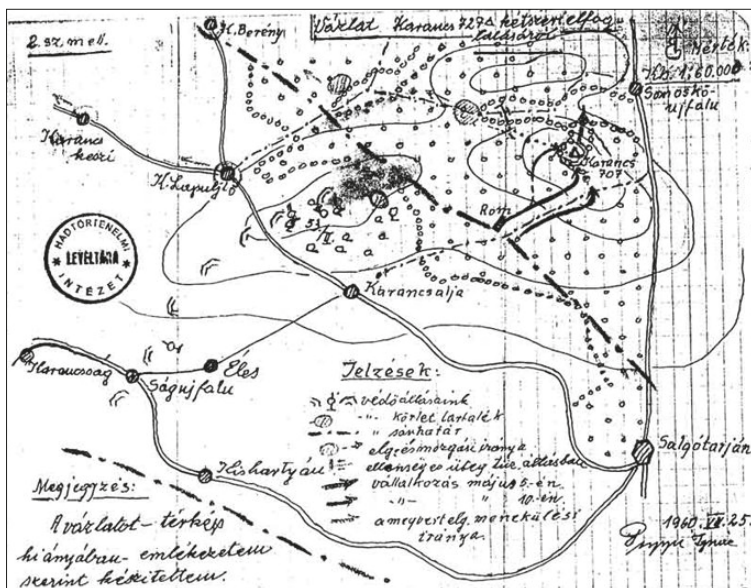 2. sz. mell.
Vázlat Karancs 727Δ kétszeri elfog-
lalásáról
Mérték:
Kb. 1:60.000
K. Berény
Somoskő-
ujfalu
Karancs
keszi
K. Lapujtő
Karancs
707
Rom
53
II.
HADTÖRTÉNELMI
LEVÉLTÁRA
INTÉZET
Karancsalja
Karancsság
Ságujfalu
Éles
Kishartyán
Salgótarján
Jelzések:
védőállásaink
-"- körlet tartalék
-"- sávhatár
ellenséges üteg tüz állásban
vállalkozás május 5.-én
-"- " 10.-én.
iránya.
Megjegyzés:
A vázlatot - térkép
hiányában - emlékezetem
szerint készítettem.
1960. VII. 25.